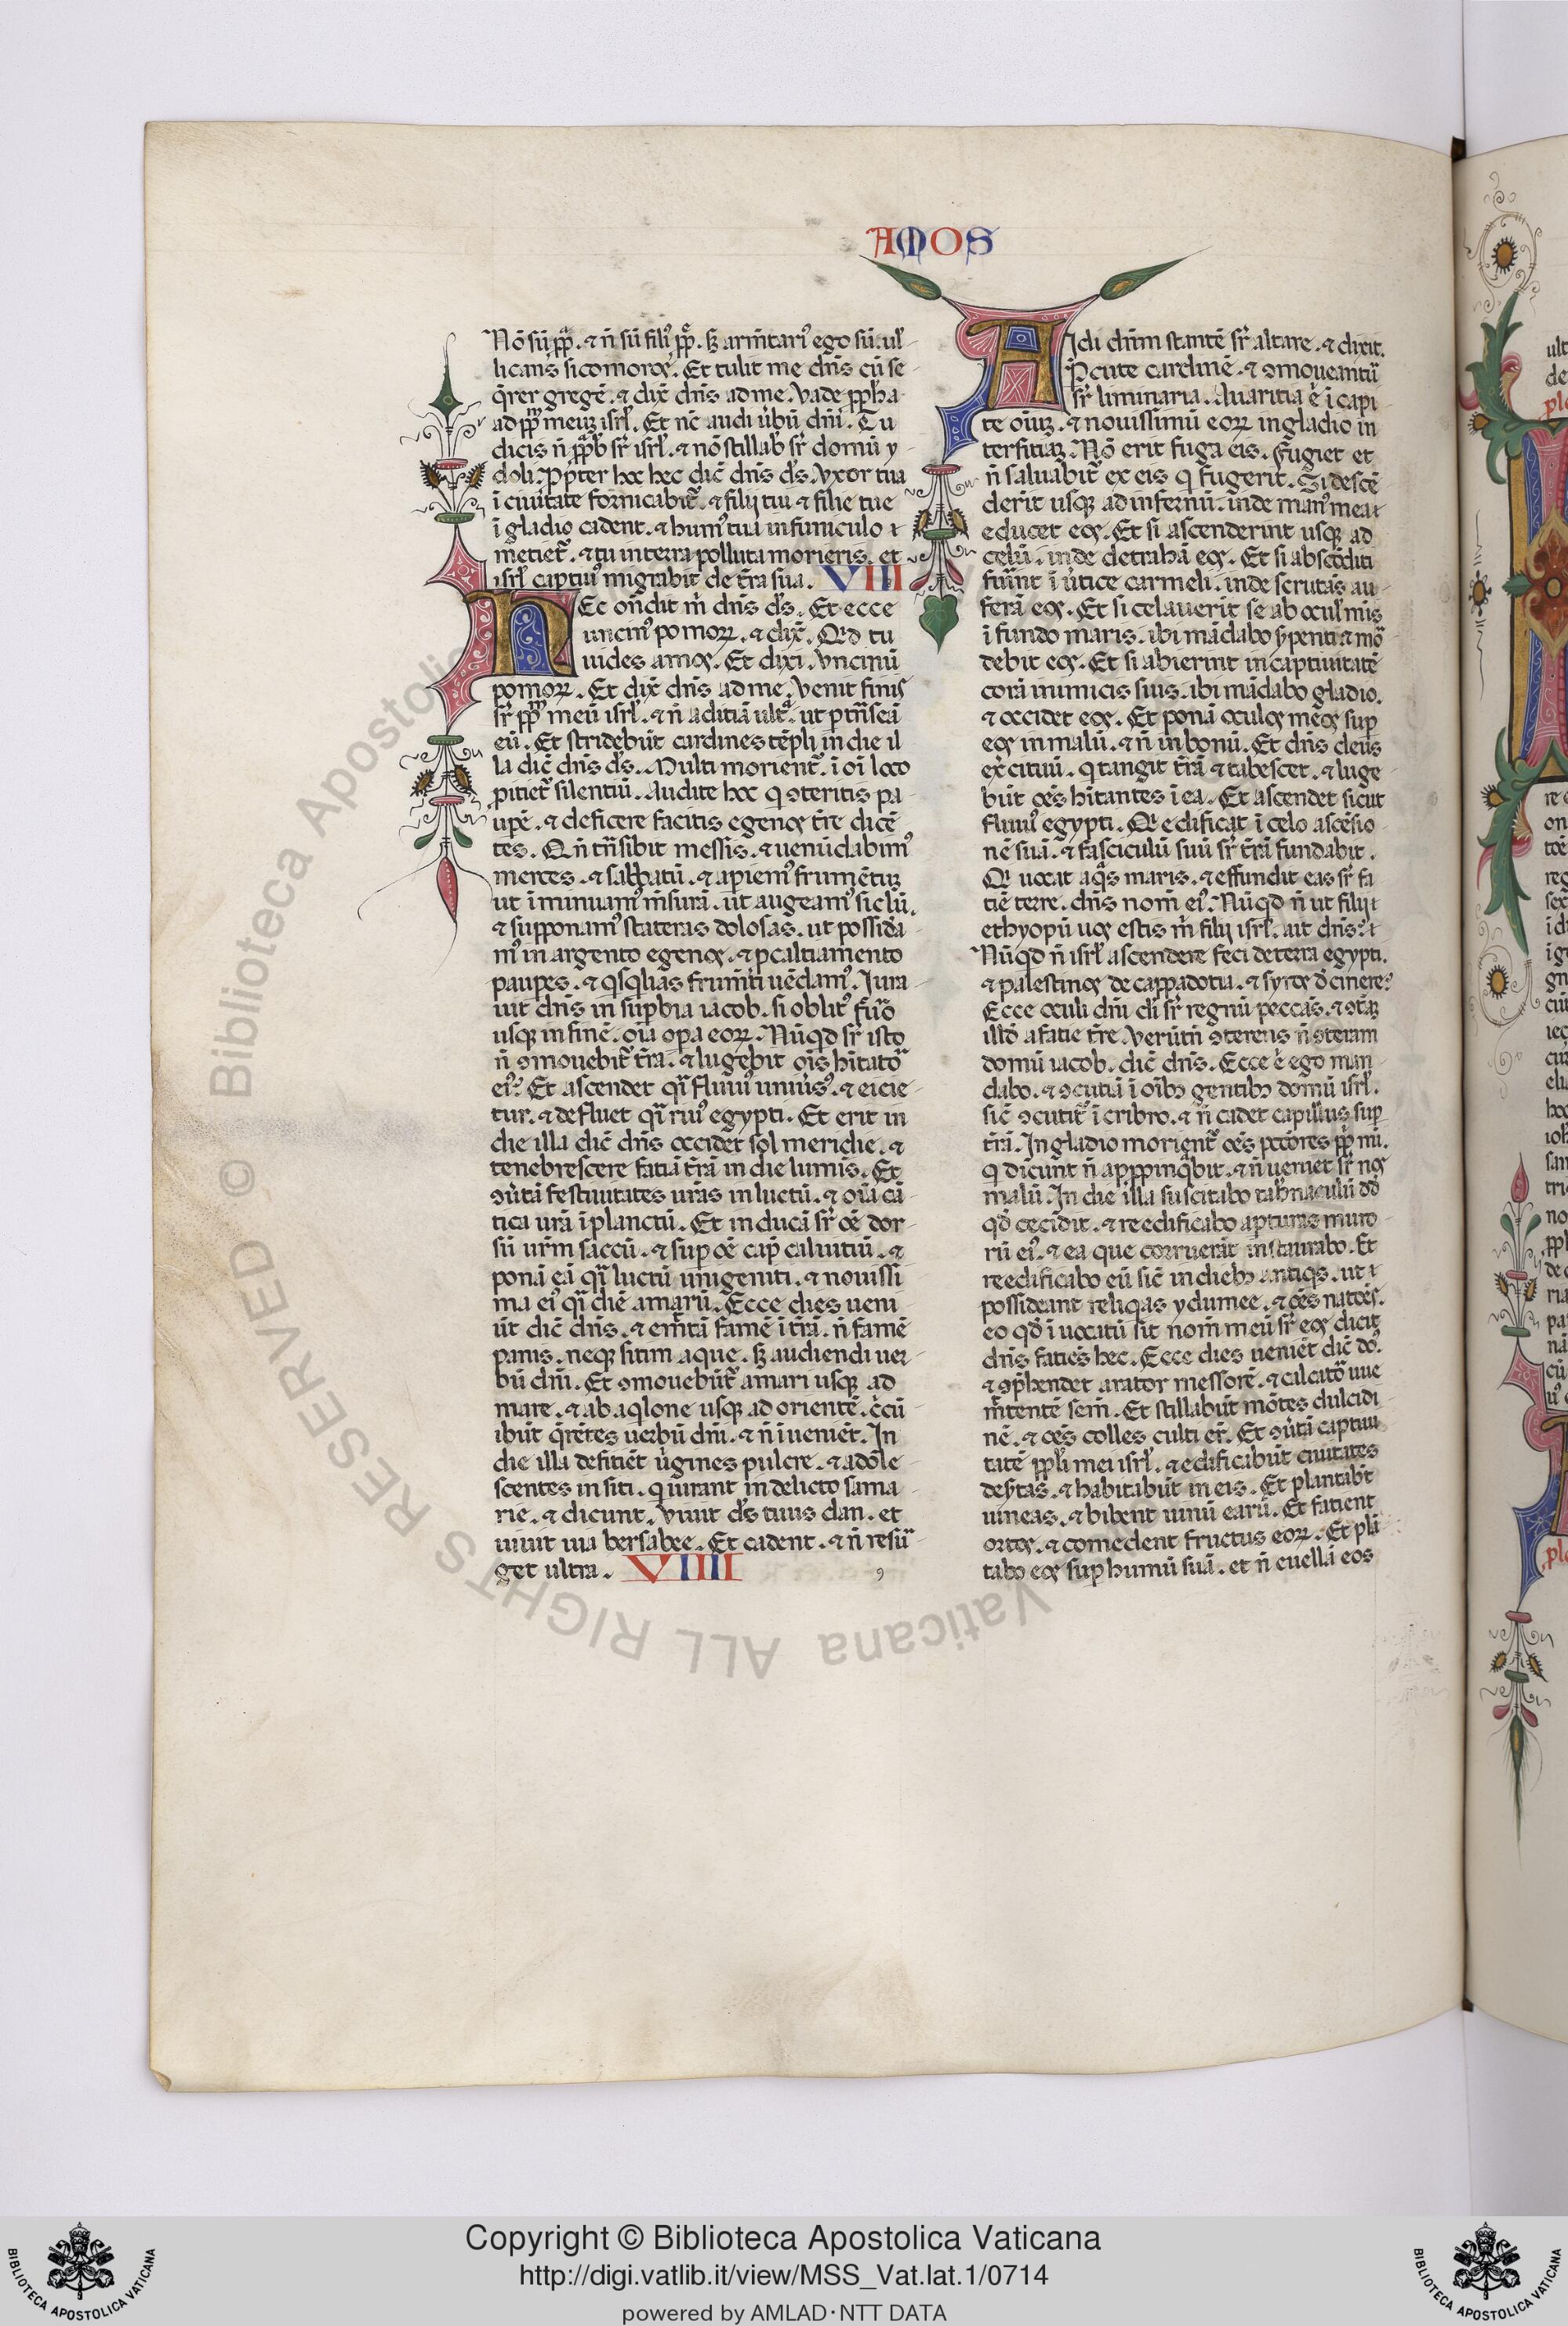 AMOS
Nō sū pp̄. ⁊ n̄ sū filiꝰ pp̄. sꝫ arm̄tariꝰ ego sū. uel
licans sicomoros. Et tulit me dn̄s cū se
q̄rer gregē. ⁊ dix̄ dn̄s ad me. Vade ppħa
ad pp̄m meuꝫ isrł. Et nc̄ audi ūbū dn̄i. Tu
dicis n̄ ppħb sr̄ isrł. ⁊ nō stillab sr̄ domū y
doli. Ppter hoc hec dic̄ dn̄s ds̄. Vxor tua
ī ciuitate fornicabit̄. ⁊ filij tui ⁊ filie tue
ī gladio cadent. ⁊ humꝰ tua in funiculo
metiet̄. ⁊ tu in terra polluta morieris. et
isrł captiuꝰ migrabit de tr̄a sua. VIII
Hec ondit m̄ dn̄s ds̄. Et ecce
uncinꝰ pomoꝝ. ⁊ dix̄. Qd tu
uides amos. Et dixi. Vncinū
pomoꝝ. Et dix̄ dn̄s ad me. Venit finis
sr̄ pp̄m meū isrł. ⁊ n̄ aditiā ultᵃ. ut ptn̄seā
eū. Et stridebūt cardines tēpli in die il
la dic̄ dn̄s ds̄. Multi morient̄. ī oī loco
ꝓitiet̄ silentiū. Audite hoc q ꝯteritis pa
upē. ⁊ deficere facitis egenos tr̄e dicē
tes. Qn̄ tn̄sibit messis. ⁊ uenūdabimꝰ
merces. ⁊ sabbatū. ⁊ apiemꝰ frumētuꝫ
ut īminuamꝰ m̄surā. ut augeamꝰ siclū.
⁊ supponamꝰ stateras dolosas. ut possidea
mꝰ in argento egenos. ⁊ ꝓ caltiamento
paupes. ⁊ qsqlias frum̄ti uēdamꝰ. Iura
uit dn̄s in supbia iacob. si oblitꝰ fūo
usqꝫ in finē. oīa opa eoꝝ. Nūqd sr̄ isto
n̄ ꝯmouebit̄ tr̄a. ⁊ lugebit oīs hītator
eiꝰ? Et ascendet qī fluuiꝰ uniūsꝰ. ⁊ eicie
tur. ⁊ defluet qī riuꝰ egypti. Et erit in
die illa dic̄ dn̄s occidet sol meridie. ⁊
tenebrescere fatiā tr̄ā in die luminis. Et
ꝯūtā festiuitates urās in luctū. ⁊ oīa cā
tica urā ī planctū. Et inducā sr̄ oē dor
sū urm̄ saccū. ⁊ sup oē cap̄ caluitiū. ⁊
ponā eā qī luctū unigeniti. ⁊ nouissi
ma eiꝰ qī diē amarū. Ecce dies ueni
ūt dic̄ dn̄s. ⁊ emītā famē ī tr̄ā. n̄ famē
panis. neqꝫ sitim aque. sꝫ audiendi uer
bū dn̄i. Et ꝯmouebūt̄ a mari usqꝫ ad
mare. ⁊ ab aqlone usqꝫ ad orientē. c̄cū
ibūt q̄rētes uerbū dn̄i. ⁊ n̄ īueniēt. In
die illa defitiēt ūgines pulcre. ⁊ adole
scentes in siti. q iurant in delicto sama
rie. ⁊ dicunt. Viuit ds̄ tuus dan. et
uiuit uia bersabee. Et cadent. ⁊ n̄ resur
get ultra. VIIII
Uidi dn̄m stantē sr̄ altare. ⁊ dixit.
Pcute cardinē. ⁊ ꝯmoueantur
sr̄ liminaria. Auaritia ē ī capi
te oīuꝫ. ⁊ nouissimū eoꝝ in gladio in
terfitiaꝫ. Nō erit fuga eis. Fugiet et
n̄ saluabit̄ ex eis q fugerit. Si descē
derit usqꝫ ad infernū. inde manꝰ mea
educet eos. Et si ascenderint usqꝫ ad
celū. inde detrahā eos. Et si abscōditi
fuīnt ī ūtice carmeli. inde scrutās au
ferā eos. Et si celauerit se ab oculꝭ mīs
ī fundo maris. ibi mādabo spenti ⁊ mor
debit eos. Et si abierint in captiuitatē
corā inimicis suis. ibi mādabo gladio.
⁊ occidet eos. Et ponā oculos meos sup
eos in malū. ⁊ n̄ in bonū. Et dn̄s deus
exercituū. q tangit tr̄ā ⁊ tabescet. ⁊ luge
būt oēs hītantes ī ea. Et ascendet sicut
fluuiꝰ egypti. Q edificat ī celo ascēsio
nē suā. ⁊ fasciculū suū sr̄ tr̄ā fundabit.
Q uocat aqᵃs maris. ⁊ effundit eas sr̄ fa
tiē terre. dn̄s nom̄ eiꝰ. Nūqd n̄ ut filij
ethyopū uos estis m̄ filij isrł. ait dn̄s?
Nūqd n̄ isrł ascendere feci de terra egypti.
⁊ palestinos de cappadotia. ⁊ syros d̄ cirene?
Ecce oculi dn̄i di sr̄ regnū peccās. ⁊ ꝯtaꝫ
illd a fatie tr̄e. Verūtn̄ ꝯterens n̄ ꝯteram
domū iacob. dic̄ dn̄s. Ecce ē ego man
dabo. ⁊ ꝯcutiā ī oībꝫ gentibꝫ domū isrł.
sic̄ ꝯcutit̄ ī cribro. ⁊ n̄ cadet capillus sup
tr̄ā. In gladio morient̄ oēs pctōres pp̄li mī.
q dicunt n̄ appropinqᵃbit. ⁊ n̄ ueniet sr̄ nos
malū. In die illa suscitabo tab̄naculū dd̄
qd̄ cecidit. ⁊ reedificabo apturas muro
rū eiꝰ. ⁊ ea que corruerāt instaurabo. Et
reedificabo eū sic̄ in diebꝫ antiqs. ut
possideant reliqas ydumee. ⁊ oēs natōes.
eo qd̄ īuocatū sit nom̄ meū sr̄ eos dicit
dn̄s faties hec. Ecce dies ueniēt dic̄ dn̄s.
⁊ ꝯp̄hendet arator messorē. ⁊ calcator uue
m̄tentē sem̄. Et stillabūt mōtes dulcidi
nē. ⁊ oēs colles culti er̄t. Et ꝯūtā captiui
tatē pp̄li mei isrł. ⁊ edificabūt ciuitates
desertas. ⁊ habitabūt in eis. Et plantabt̄
uineas. ⁊ bibent uinū earū. Et fatient
ortos. ⁊ comedent fructus eoꝝ. Et plā
tabo eos sup humū suā. et n̄ euellā eos
© Biblioteca Apostolica Vaticana ALL RIGHTS RESERVED
Copyright © Biblioteca Apostolica Vaticana
http://digi.vatlib.it/view/MSS_Vat.lat.1/0714
powered by AMLAD·NTT DATA
BIBLIOTECA APOSTOLICA VATICANA
BIBLIOTECA APOSTOLICA VATICANA